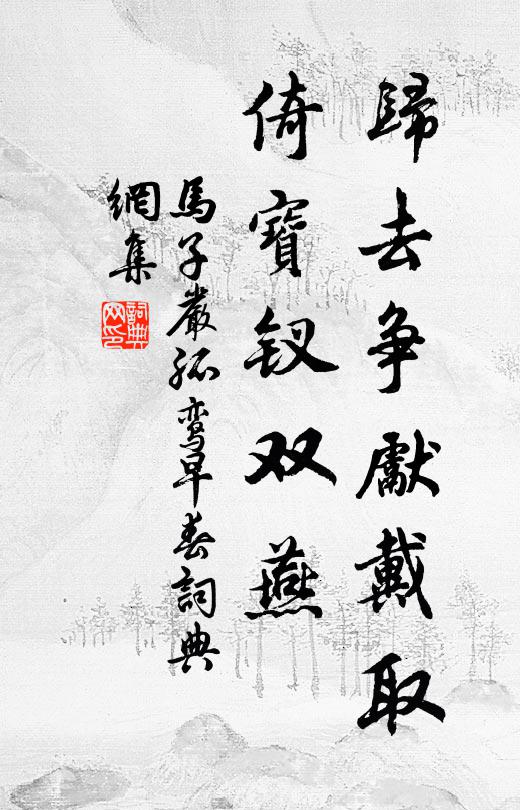 歸去争獻戴取
倚寶钗双燕
馬子嚴孤鸾早春詞典
網集
詞典网印